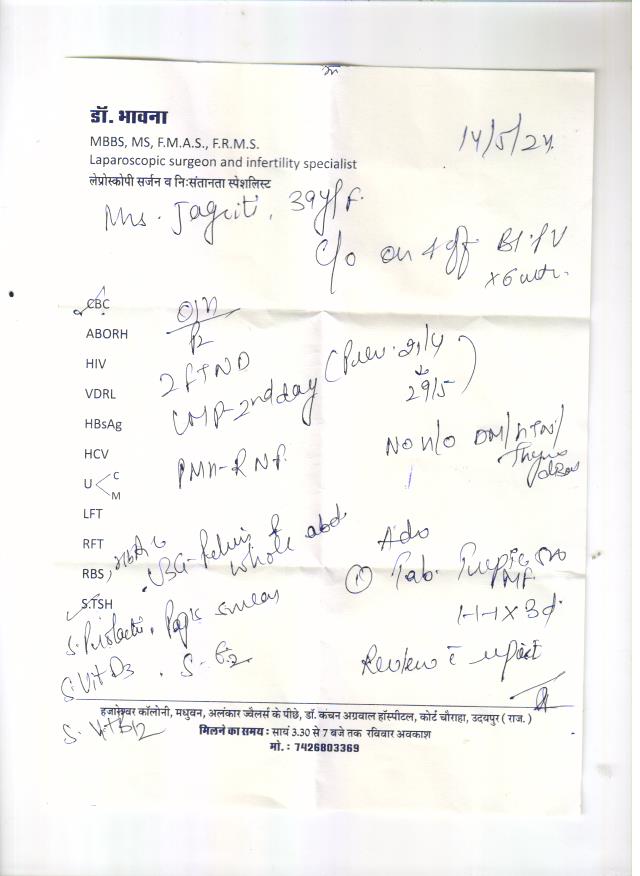 डॉ. भावना
MBBS, MS, F.M.A.S., F.R.M.S.
Laparoscopic surgeon and infertility specialist
लेप्रोस्कोपी सर्जन व निःसंतानता स्पेशलिस्ट
14/5/24
Mrs. Jagrit, 39y/F.
C/o on & off Bl. P/V
x 6 mth.
CBC
ABORH
P2
HIV
2 FTND
VDRL
LMP - 2nd day (Prev. 21/4
29/5)
HBsAg
No H/O DM/HTN/
HCV
PMH - R N P.
U C
M
LFT
RFT
Adv
RBS, HbA1c
USG - Pelvis & whole abd
① Tab.
MF
1-1-1 x 3d.
S.TSH
S. Prolactin, Pap's smear
S. Vit D3 . S. E2
Review c report
S. Vit B12
हजारेश्वर कॉलोनी, मधुवन, अलंकार ज्वैलर्स के पीछे, डॉ. कंचन अग्रवाल हॉस्पीटल, कोर्ट चौराहा, उदयपुर ( राज. )
मिलने का समय : सायं 3.30 से 7 बजे तक रविवार अवकाश
मो. : 7426803369